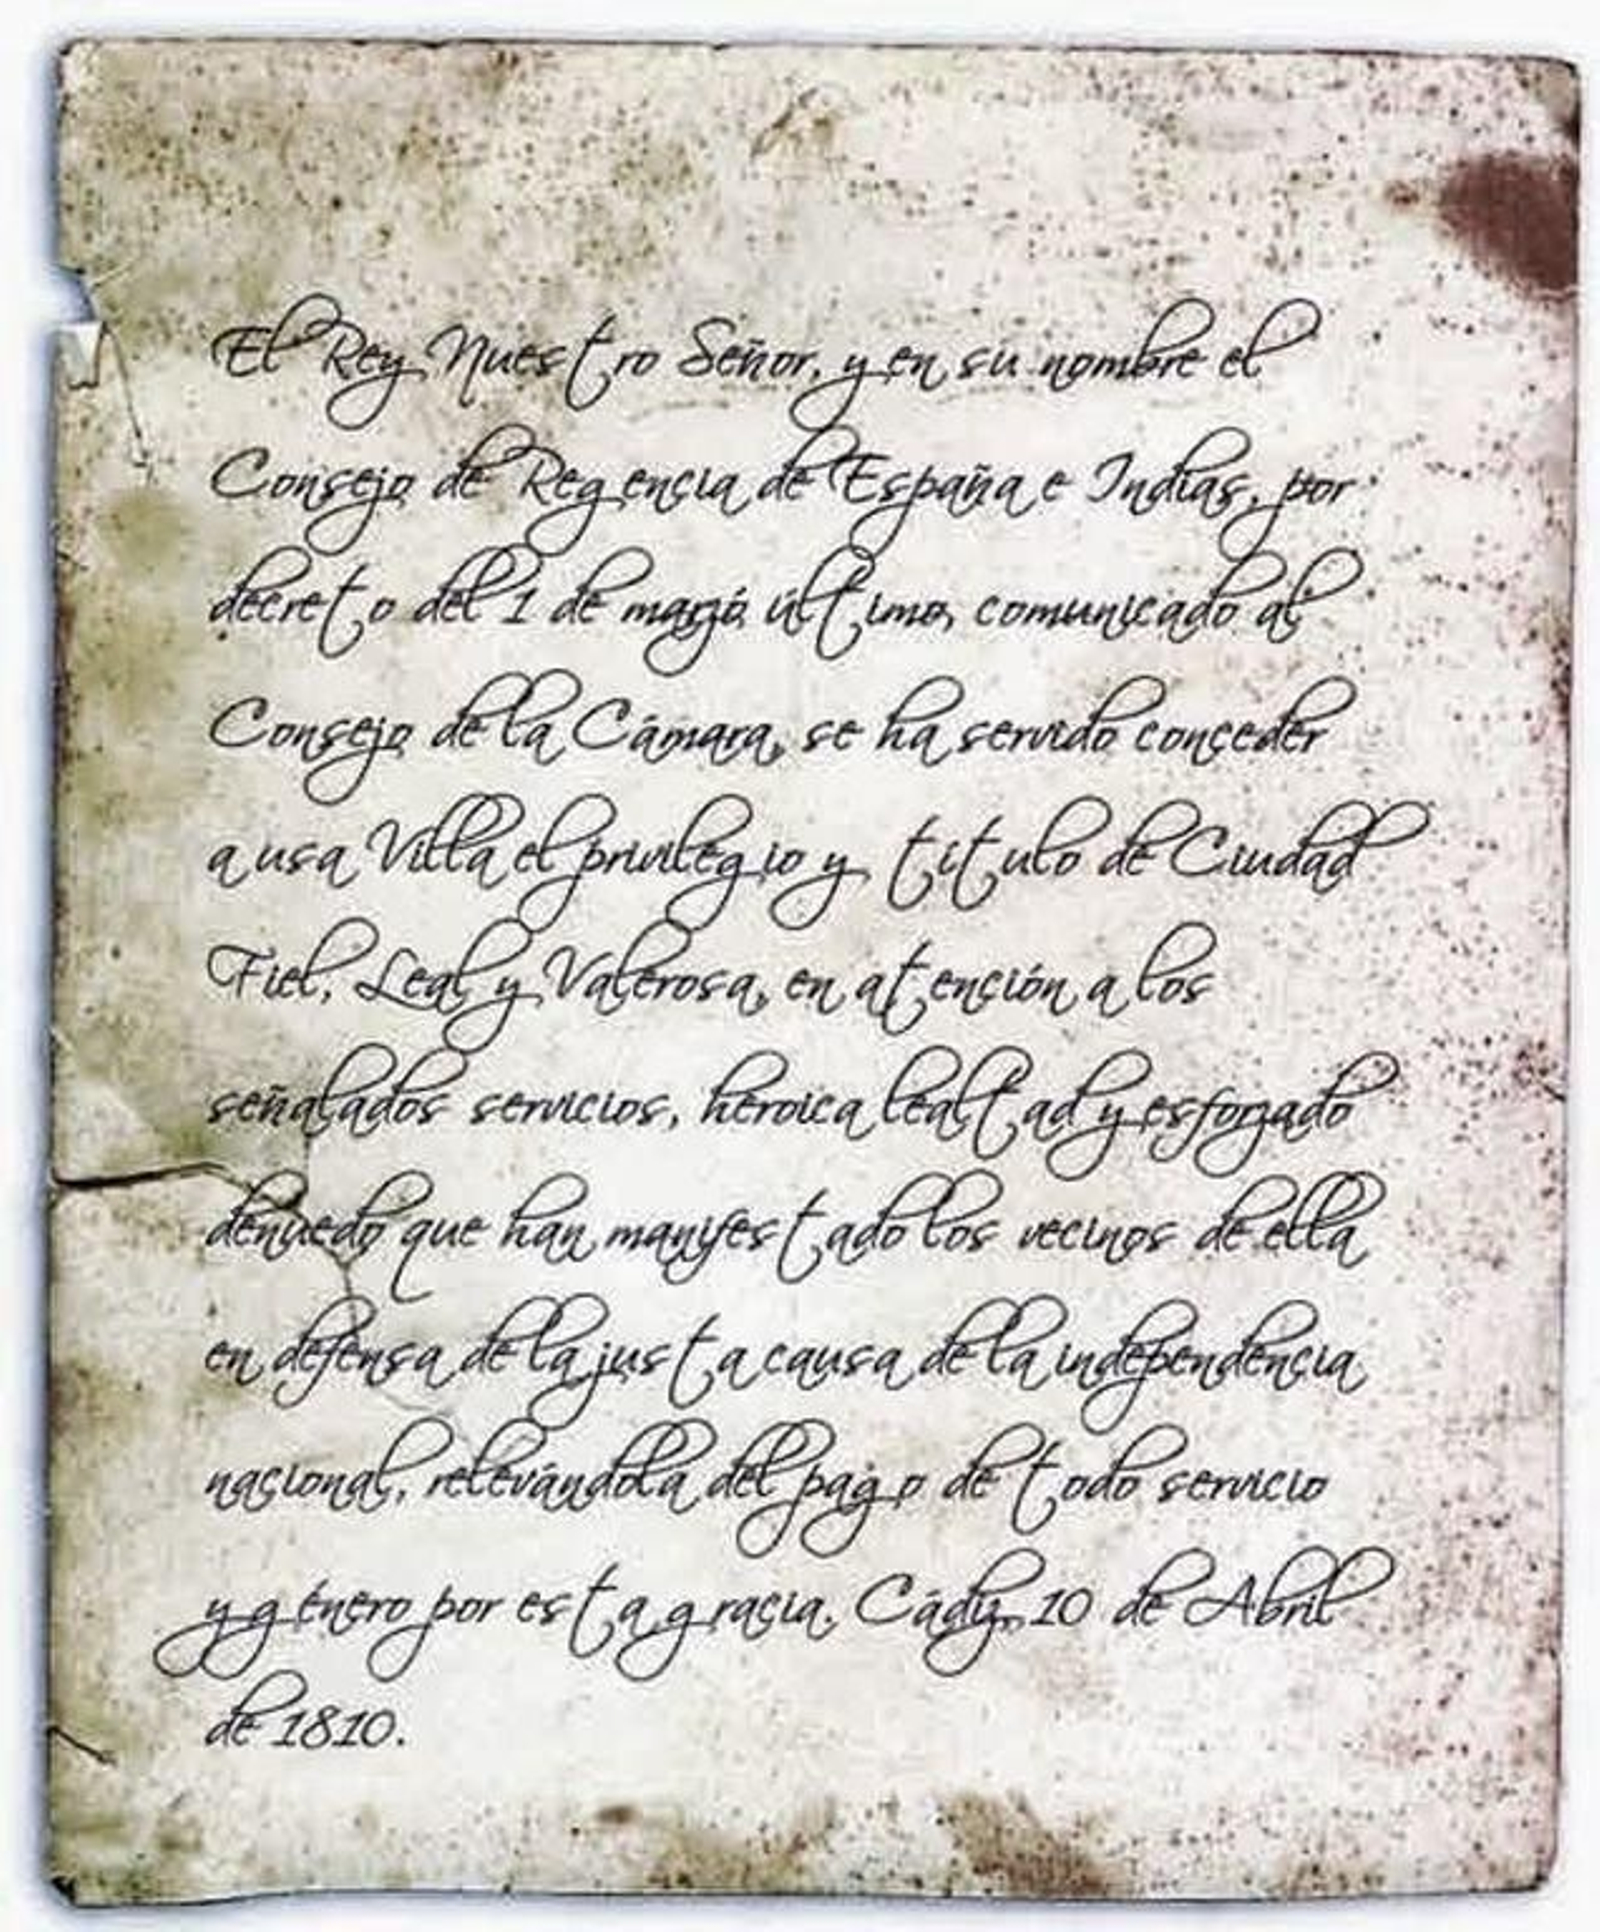 El Rey Nuestro Señor, y en su nombre el
Consejo de Regencia de España e Indias, por
decreto del 1 de marzo último, comunicado al
Consejo de la Cámara, se ha servido conceder
a usa Villa el privilegio y titulo de Ciudad
Fiel, Leal y Valerosa, en atención a los
señalados servicios, heroica lealtad y esforzado
denuedo que han manifestado los vecinos de ella
en defensa de la justa causa de la independencia
nacional, relevándola del pago de todo servicio
y género por esta gracia. Cádiz, 10 de Abril
de 1810.